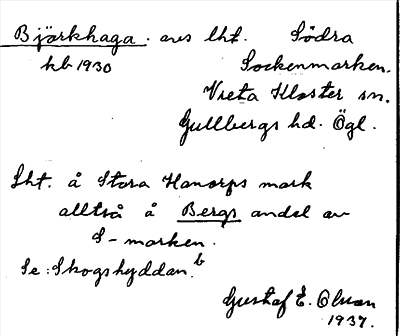 Björkhaga. avs lht. Södra
kb 1930 Sockenmarken.
Vreta Kloster sn.
Gullbergs hd. Ögl.
Lht. å Stora Hanorps mark
alltså å Bergs andel av
S-marken.
Se: Skogshyddan.b
Gustaf E. Olsson
1937.